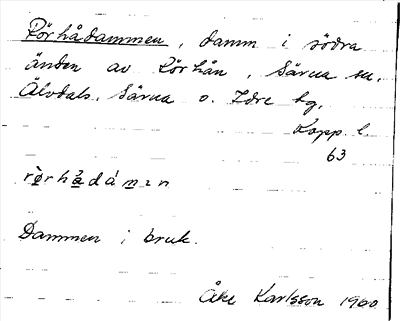 Rörhådammen, damm i södra
änden av Rörhån, Särna sn.
Älvdals, Särna o. Idre tg.
Kopp. l.
63
Dammen i bruk.
Åke Karlsson 1960